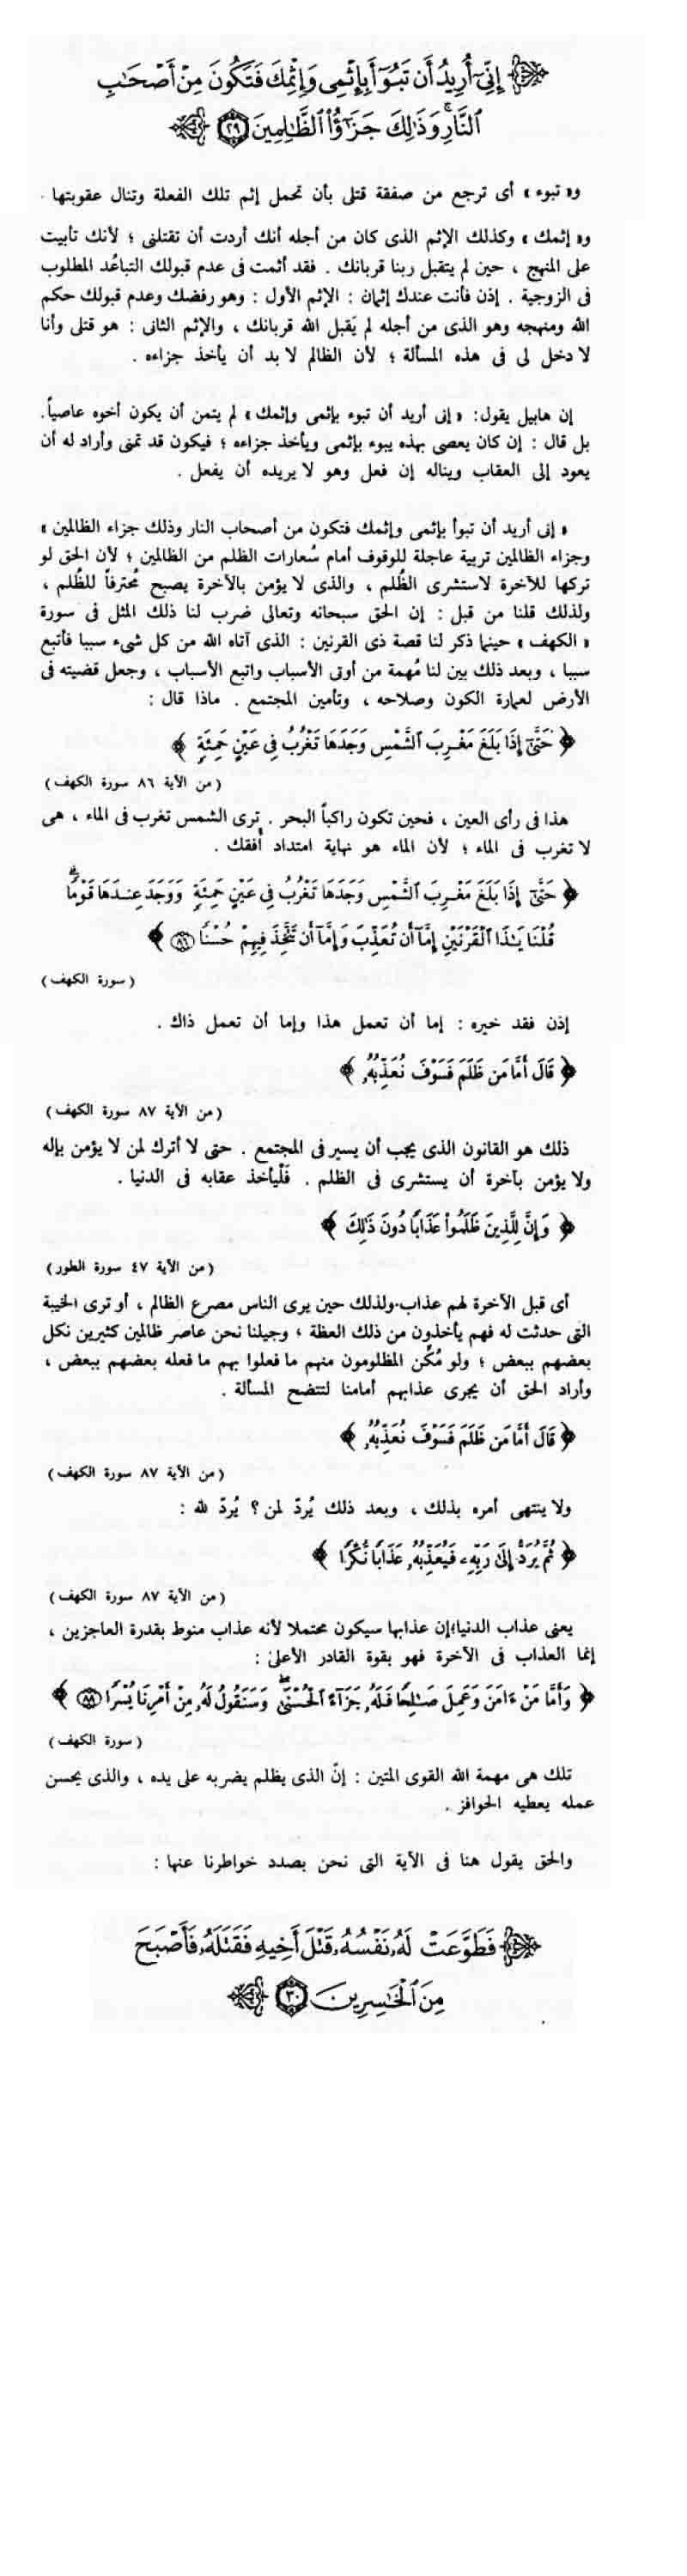 إِنِّىٓ أُرِيدُ أَن تَبُوٓأَ بِإِثْمِى وَإِثْمِكَ فَتَكُونَ مِنْ أَصْحَٰبِ
ٱلنَّارِ ۚ وَذَٰلِكَ جَزَٰٓؤُا۟ ٱلظَّٰلِمِينَ ٢٩
و« تبوء » أى ترجع من صفقة قتلى بأن تحمل إثم تلك الفعلة وتنال عقوبتها .
و« إثمك » وكذلك الإثم الذى كان من أجله أنك أردت أن تقتلنى ؛ لأنك تأبيت
على المنهج ، حين لم يتقبل ربنا قربانك . فقد أثمت فى عدم قبولك التباعُد المطلوب
فى الزوجية . إذن فأنت عندك إثمان : الإثم الأول : وهو رفضك وعدم قبولك حكم
الله ومنهجه وهو الذى من أجله لم يَقبل الله قربانك ، والإثم الثانى : هو قتلى وأنا
لا دخل لى فى هذه المسألة ؛ لأن الظالم لا بد أن يأخذ جزاءه .
إن هابيل يقول: « إنى أريد أن تبوء بإثمى وإثمك » لم يتمن أن يكون أخوه عاصياً.
بل قال : إن كان يعصى بهذه يبوء بإثمى ويأخذ جزاءه ؛ فيكون قد تمنى وأراد له أن
يعود إلى العقاب ويناله إن فعل وهو لا يريده أن يفعل .
« إنى أريد أن تبوأ بإثمى وإثمك فتكون من أصحاب النار وذلك جزاء الظالمين »
وجزاء الظالمين تربية عاجلة للوقوف أمام سُعارات الظلم من الظالمين ؛ لأن الحق لو
تركها للآخرة لاستشرى الظُلم ، والذى لا يؤمن بالآخرة يصبح مُحترفاً للظُلم ،
ولذلك قلنا من قبل : إن الحق سبحانه وتعالى ضرب لنا ذلك المثل فى سورة
« الكهف » حينما ذكر لنا قصة ذى القرنين : الذى آتاه الله من كل شىء سببا فأتبع
سببا ، وبعد ذلك بين لنا مُهمة من أوتى الأسباب واتبع الأسباب ، وجعل قضيته فى
الأرض لعمارة الكون وصلاحه ، وتأمين المجتمع . ماذا قال :
﴿ حَتَّىٰٓ إِذَا بَلَغَ مَغْرِبَ ٱلشَّمْسِ وَجَدَهَا تَغْرُبُ فِى عَيْنٍ حَمِئَةٍ ﴾
( من الآية ٨٦ سورة الكهف )
هذا فى رأى العين ، فحين تكون راكباً البحر . ترى الشمس تغرب فى الماء ، هى
لا تغرب فى الماء ؛ لأن الماء هو نهاية امتداد أفقك .
﴿ حَتَّىٰٓ إِذَا بَلَغَ مَغْرِبَ ٱلشَّمْسِ وَجَدَهَا تَغْرُبُ فِى عَيْنٍ حَمِئَةٍ وَوَجَدَ عِندَهَا قَوْمًا ۗ
قُلْنَا يَٰذَا ٱلْقَرْنَيْنِ إِمَّآ أَن تُعَذِّبَ وَإِمَّآ أَن تَتَّخِذَ فِيهِمْ حُسْنًا ٨٦ ﴾
( سورة الكهف )
إذن فقد خيره : إما أن تعمل هذا وإما أن تعمل ذاك .
﴿ قَالَ أَمَّا مَن ظَلَمَ فَسَوْفَ نُعَذِّبُهُۥ ﴾
( من الآية ٨٧ سورة الكهف )
ذلك هو القانون الذى يجب أن يسير فى المجتمع . حتى لا أترك لمن لا يؤمن بإله
ولا يؤمن بآخرة أن يستشرى فى الظلم . فَلْيأخذ عقابه فى الدنيا .
﴿ وَإِنَّ لِلَّذِينَ ظَلَمُوا۟ عَذَابًا دُونَ ذَٰلِكَ ﴾
( من الآية ٤٧ سورة الطور )
أى قبل الآخرة لهم عذاب.ولذلك حين يرى الناس مصرع الظالم ، أو ترى الخيبة
التى حدثت له فهم يأخذون من ذلك العظة ؛ وجيلنا نحن عاصر ظالمين كثيرين نكل
بعضهم ببعض ؛ ولو مُكِّن المظلومون منهم ما فعلوا بهم ما فعله بعضهم ببعض ،
وأراد الحق أن يجرى عذابهم أمامنا لتتضح المسألة .
﴿ قَالَ أَمَّا مَن ظَلَمَ فَسَوْفَ نُعَذِّبُهُۥ ﴾
( من الآية ٨٧ سورة الكهف )
ولا ينتهى أمره بذلك ، وبعد ذلك يُردّ لمن ؟ يُردّ لله :
﴿ ثُمَّ يُرَدُّ إِلَىٰ رَبِّهِۦ فَيُعَذِّبُهُۥ عَذَابًا نُّكْرًا ﴾
( من الآية ٨٧ سورة الكهف )
يعنى عذاب الدنيا؛إن عذابها سيكون محتملا لأنه عذاب منوط بقدرة العاجزين ،
إنما العذاب فى الآخرة فهو بقوة القادر الأعلى :
﴿ وَأَمَّا مَنْ ءَامَنَ وَعَمِلَ صَٰلِحًا فَلَهُۥ جَزَآءً ٱلْحُسْنَىٰ ۖ وَسَنَقُولُ لَهُۥ مِنْ أَمْرِنَا يُسْرًا ٨٨ ﴾
( سورة الكهف )
تلك هى مهمة الله القوى المتين : إنّ الذى يظلم يضربه على يده ، والذى يحسن
عمله يعطيه الحوافز .
والحق يقول هنا فى الآية التى نحن بصدد خواطرنا عنها :
فَطَوَّعَتْ لَهُۥ نَفْسُهُۥ قَتْلَ أَخِيهِ فَقَتَلَهُۥ فَأَصْبَحَ
مِنَ ٱلْخَٰسِرِينَ ٣٠